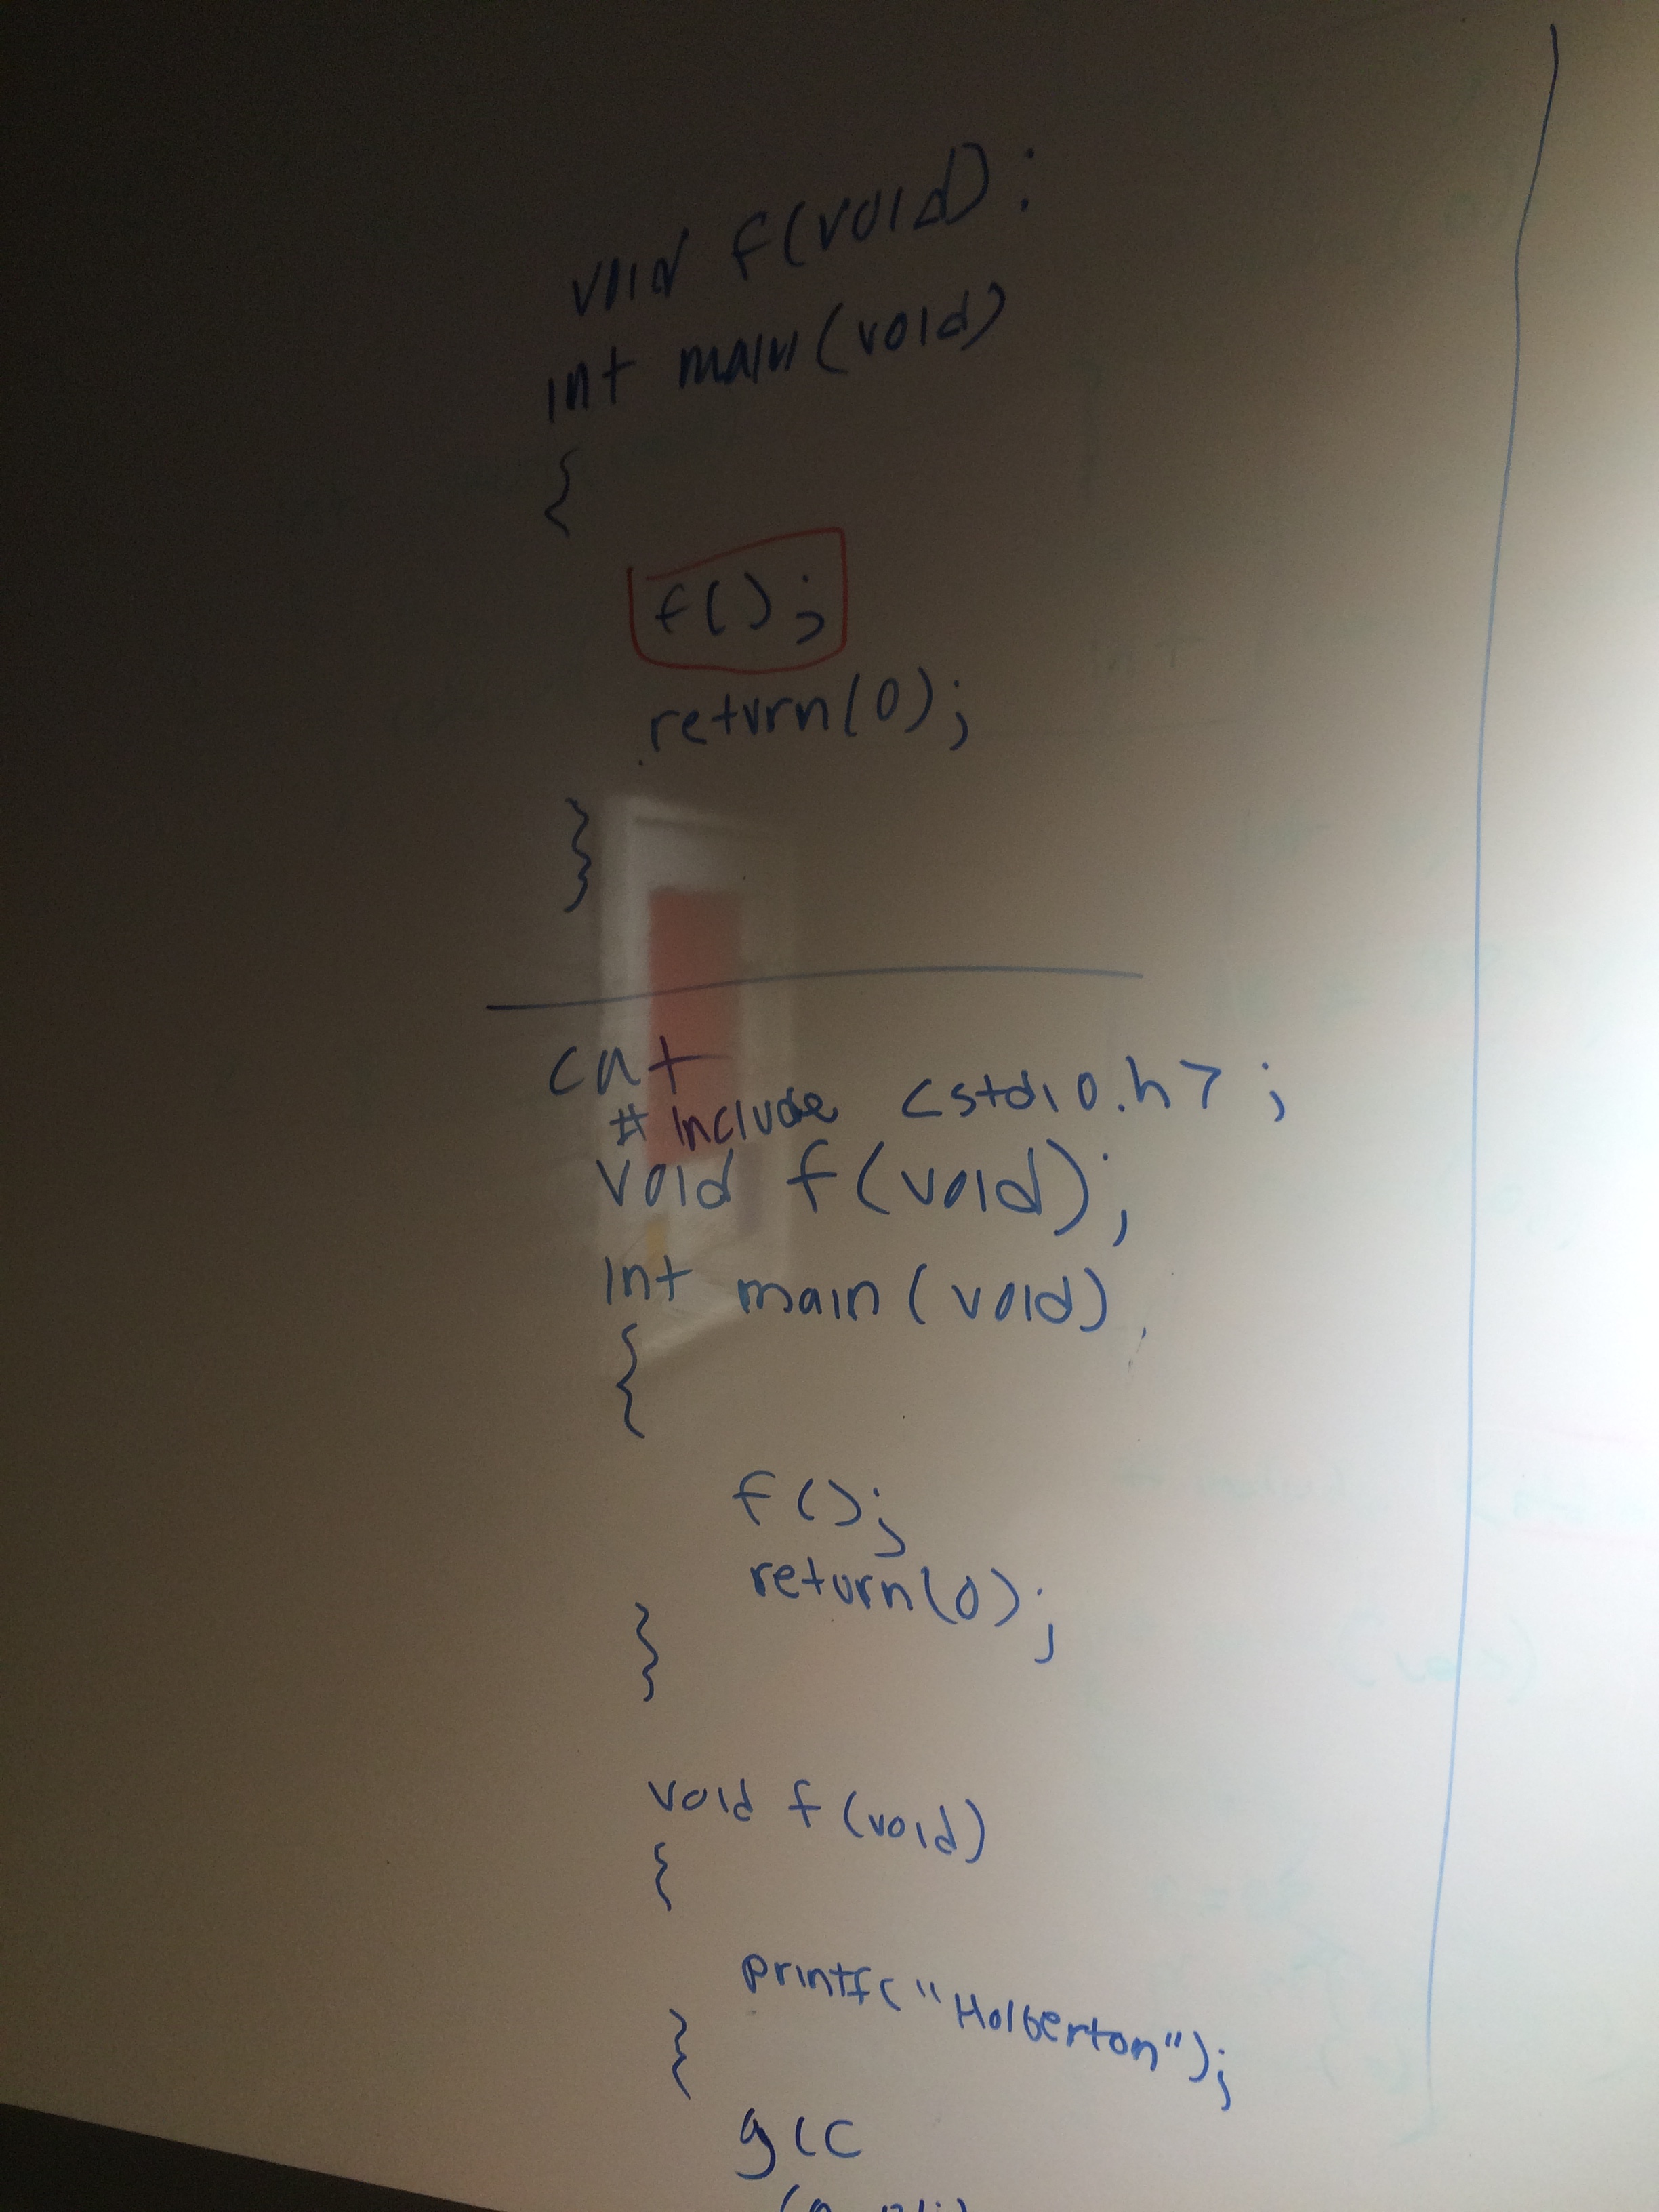 void f(void);
int main(void)
{
f();
return(0);
}
cat
#include <stdio.h>;
void f(void);
int main(void)
{
f();
return(0);
}
void f(void)
{
printf("Holberton");
}
gcc